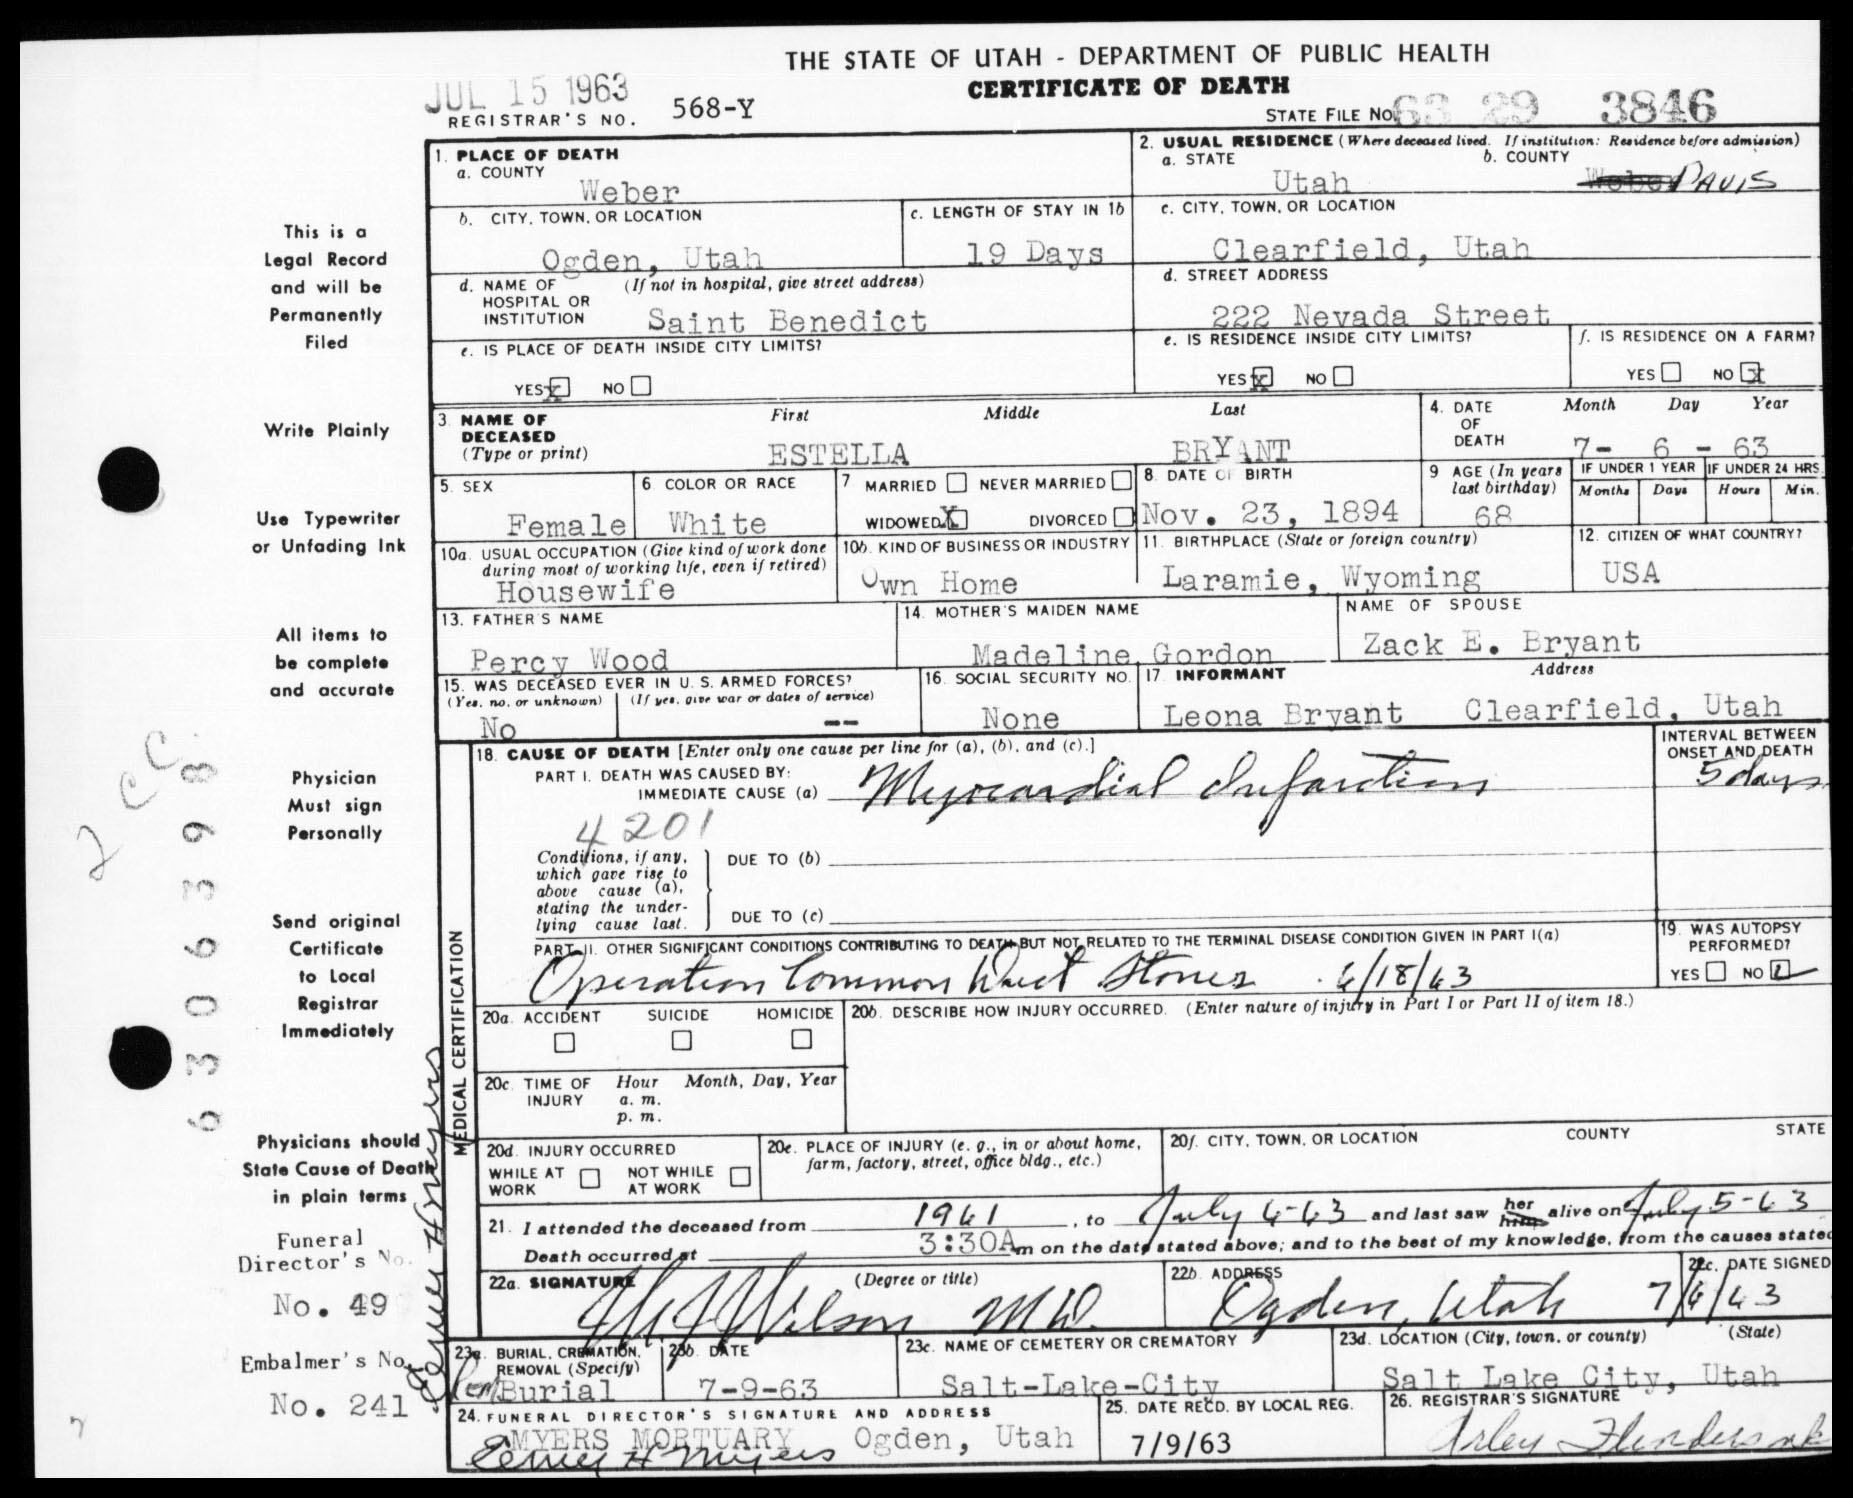 THE STATE OF UTAH - DEPARTMENT OF PUBLIC HEALTH
CERTIFICATE OF DEATH
JUL 15 1963
REGISTRAR'S NO. 568-Y
STATE FILE NO. 63 29 3846
1. PLACE OF DEATH
a. COUNTY
Weber
2. USUAL RESIDENCE (Where deceased lived. If institution: Residence before admission)
a. STATE b. COUNTY
Utah Weber DAVIS
b. CITY, TOWN, OR LOCATION
Ogden, Utah
c. LENGTH OF STAY IN 1b
19 Days
c. CITY, TOWN, OR LOCATION
Clearfield, Utah
d. NAME OF HOSPITAL OR INSTITUTION (If not in hospital, give street address)
Saint Benedict
d. STREET ADDRESS
222 Nevada Street
e. IS PLACE OF DEATH INSIDE CITY LIMITS?
YES X NO
e. IS RESIDENCE INSIDE CITY LIMITS?
YES X NO
f. IS RESIDENCE ON A FARM?
YES NO X
3. NAME OF DECEASED (Type or print)
First Middle Last
ESTELLA BRYANT
4. DATE OF DEATH Month Day Year
7- 6 - 63
5. SEX
Female
6. COLOR OR RACE
White
7. MARRIED NEVER MARRIED
WIDOWED X DIVORCED
8. DATE OF BIRTH
Nov. 23, 1894
9 AGE (In years last birthday)
68
IF UNDER 1 YEAR IF UNDER 24 HRS.
Months Days Hours Min.
10a. USUAL OCCUPATION (Give kind of work done during most of working life, even if retired)
Housewife
10b. KIND OF BUSINESS OR INDUSTRY
Own Home
11. BIRTHPLACE (State or foreign country)
Laramie, Wyoming
12. CITIZEN OF WHAT COUNTRY?
USA
13. FATHER'S NAME
Percy Wood
14. MOTHER'S MAIDEN NAME
Madeline Gordon
NAME OF SPOUSE
Zack E. Bryant
15. WAS DECEASED EVER IN U. S. ARMED FORCES?
(Yes, no, or unknown) (If yes, give war or dates of service)
No --
16. SOCIAL SECURITY NO.
None
17. INFORMANT Address
Leona Bryant Clearfield, Utah
MEDICAL CERTIFICATION
18. CAUSE OF DEATH [Enter only one cause per line for (a), (b), and (c).]
INTERVAL BETWEEN ONSET AND DEATH
PART I. DEATH WAS CAUSED BY:
IMMEDIATE CAUSE (a) Myocardial Infarction 5 days
4201
Conditions, if any, which gave rise to above cause (a), stating the underlying cause last.
DUE TO (b)
DUE TO (c)
PART II. OTHER SIGNIFICANT CONDITIONS CONTRIBUTING TO DEATH BUT NOT RELATED TO THE TERMINAL DISEASE CONDITION GIVEN IN PART I(a)
Operation Common Duct Stones 6/18/63
19. WAS AUTOPSY PERFORMED?
YES NO
20a. ACCIDENT SUICIDE HOMICIDE
20b. DESCRIBE HOW INJURY OCCURRED. (Enter nature of injury in Part I or Part II of item 18.)
20c. TIME OF INJURY Hour Month, Day, Year
a. m.
p. m.
20d. INJURY OCCURRED
WHILE AT WORK NOT WHILE AT WORK
20e. PLACE OF INJURY (e. g., in or about home, farm, factory, street, office bldg., etc.)
20f. CITY, TOWN, OR LOCATION COUNTY STATE
21. I attended the deceased from 1961, to July 6-63 and last saw her him alive on July 5-63
Death occurred at 3:30A m on the date stated above; and to the best of my knowledge, from the causes stated
22a. SIGNATURE (Degree or title)
Wilson M.D.
22b. ADDRESS
Ogden, Utah
22c. DATE SIGNED
7/6/63
23a. BURIAL, CREMATION, REMOVAL (Specify)
Rem Burial
23b. DATE
7-9-63
23c. NAME OF CEMETERY OR CREMATORY
Salt-Lake-City
23d. LOCATION (City, town, or county) (State)
Salt Lake City, Utah
24. FUNERAL DIRECTOR'S SIGNATURE AND ADDRESS
MYERS MORTUARY Ogden, Utah
H Myers
25. DATE RECD. BY LOCAL REG.
7/9/63
26. REGISTRAR'S SIGNATURE
This is a
Legal Record
and will be
Permanently
Filed
Write Plainly
Use Typewriter
or Unfading Ink
All items to
be complete
and accurate
Physician
Must sign
Personally
Send original
Certificate
to Local
Registrar
Immediately
Physicians should
State Cause of Death
in plain terms
Funeral
Director's No.
No. 49
Embalmer's No.
No. 241
H Myers
2 CC.
6306398